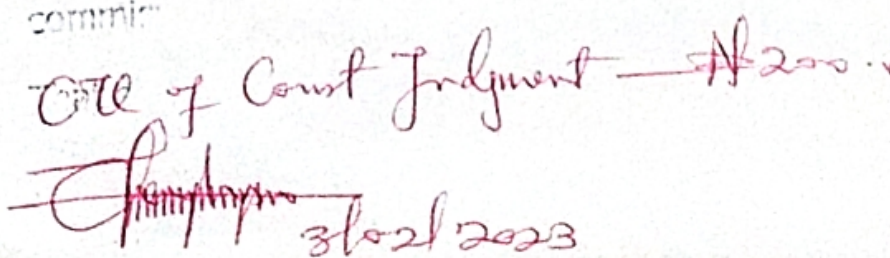 commi
CTC of Court Judgment — ₦200.
3/02/2023